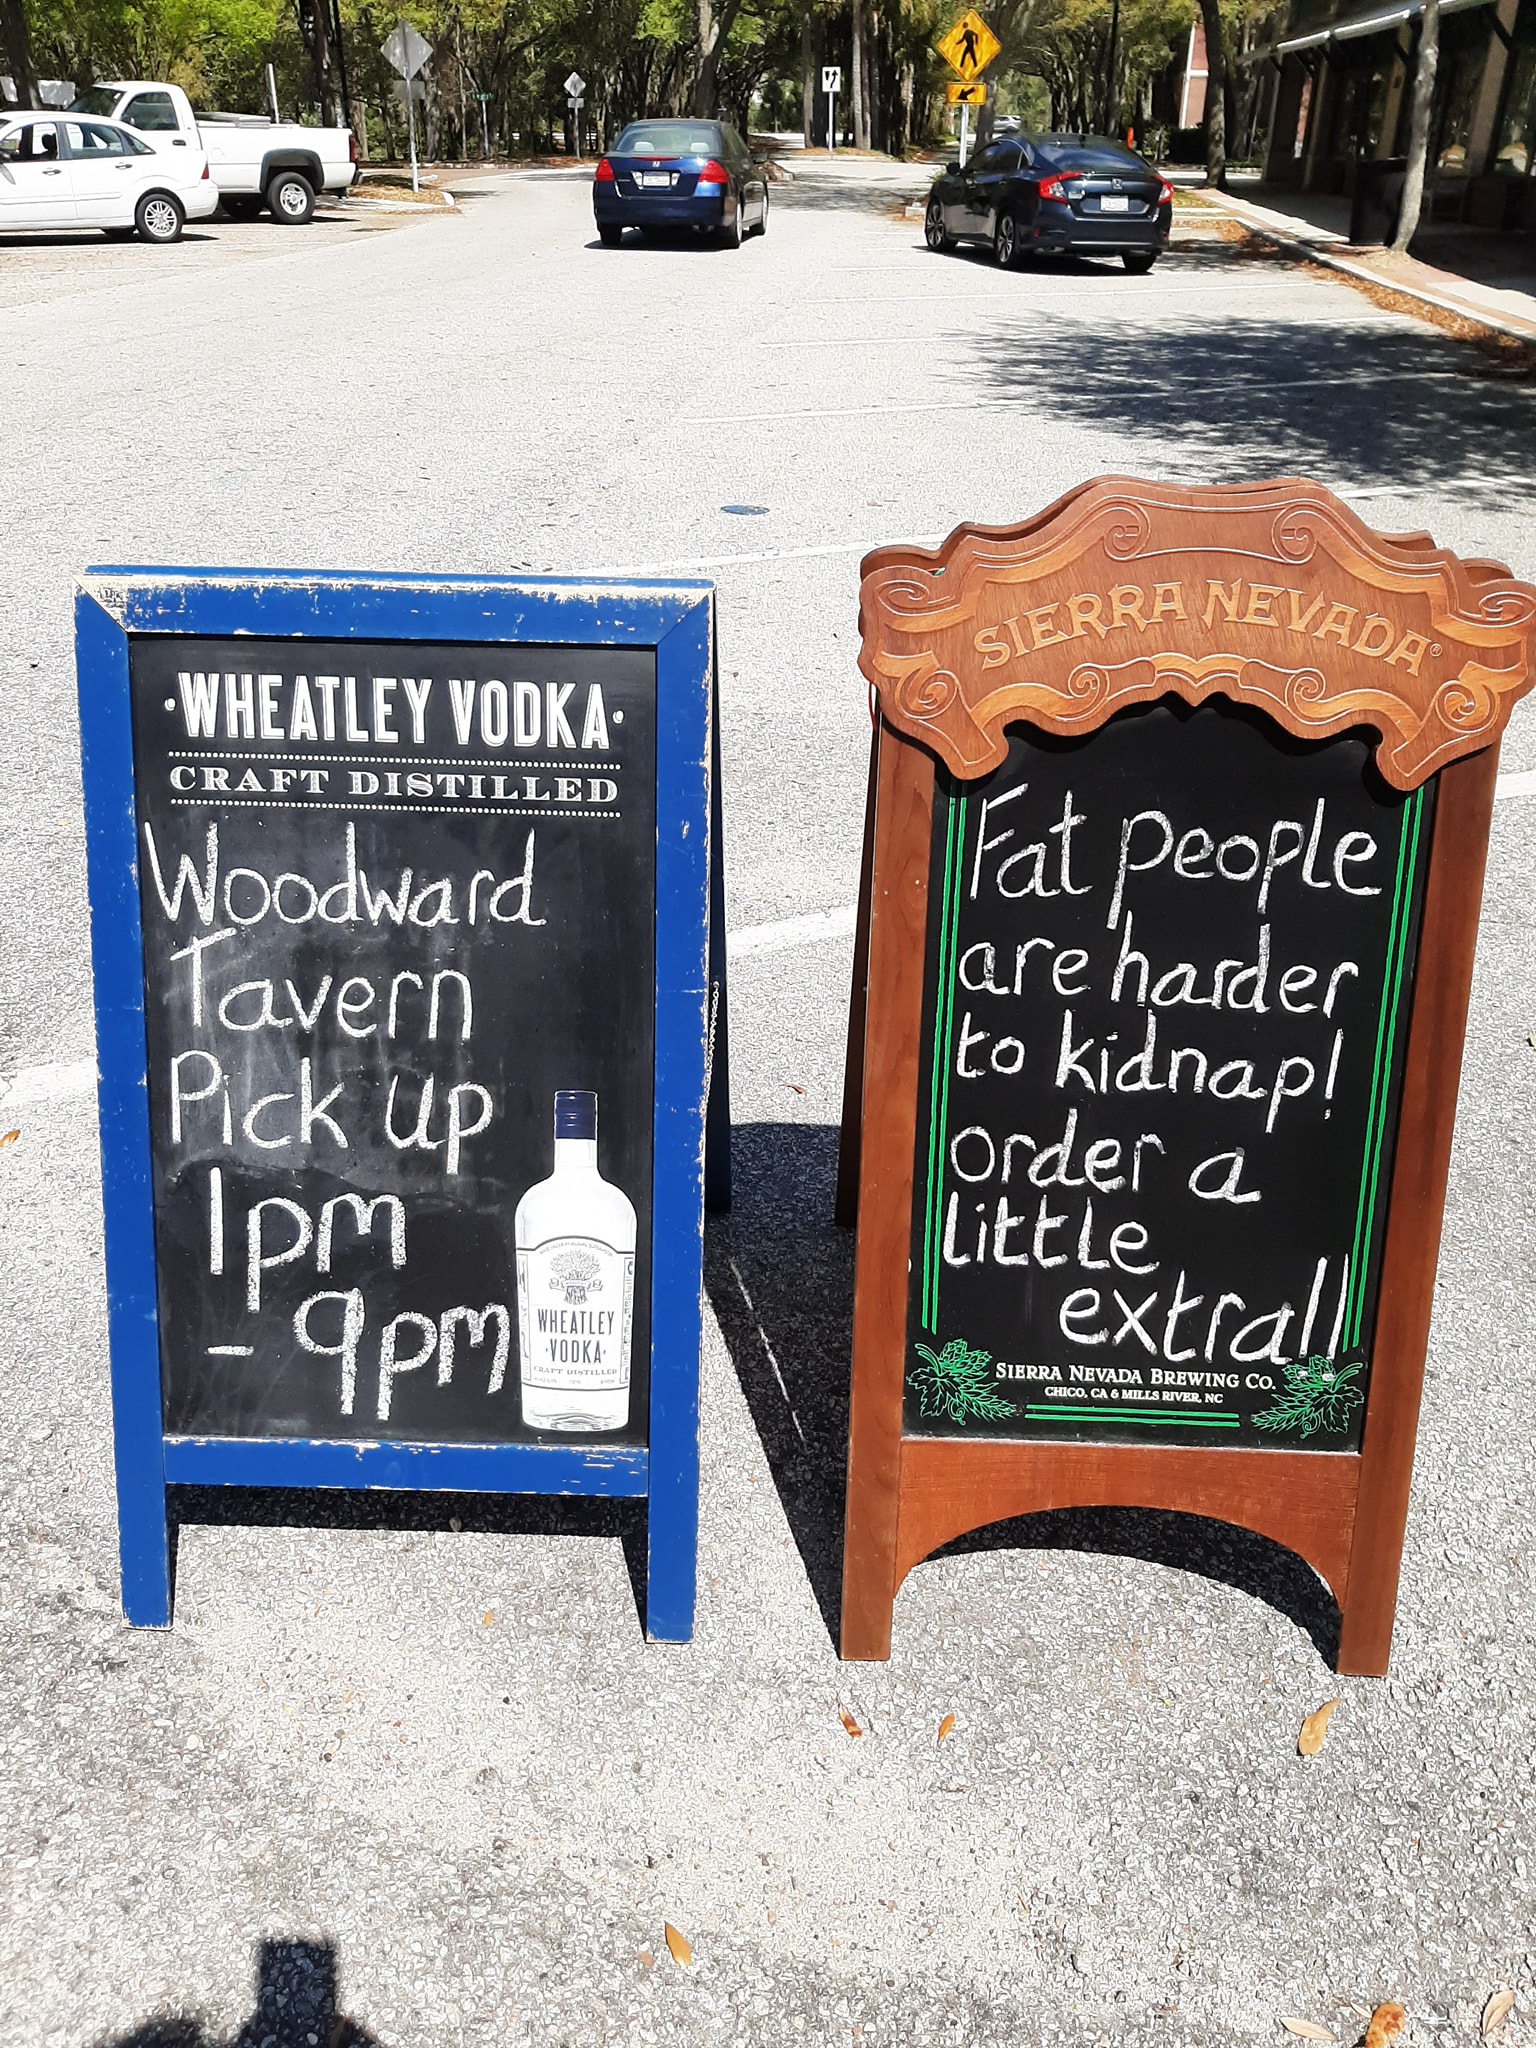 ·WHEATLEY VODKA·
CRAFT DISTILLED
Woodward
Tavern
Pick up
1pm
- 9pm
WHEATLEY
·VODKA·
CRAFT DISTILLED
SIERRA NEVADA®
Fat people
are harder
to kidnap!
order a
little
extra!!
SIERRA NEVADA BREWING CO.
CHICO, CA & MILLS RIVER, NC